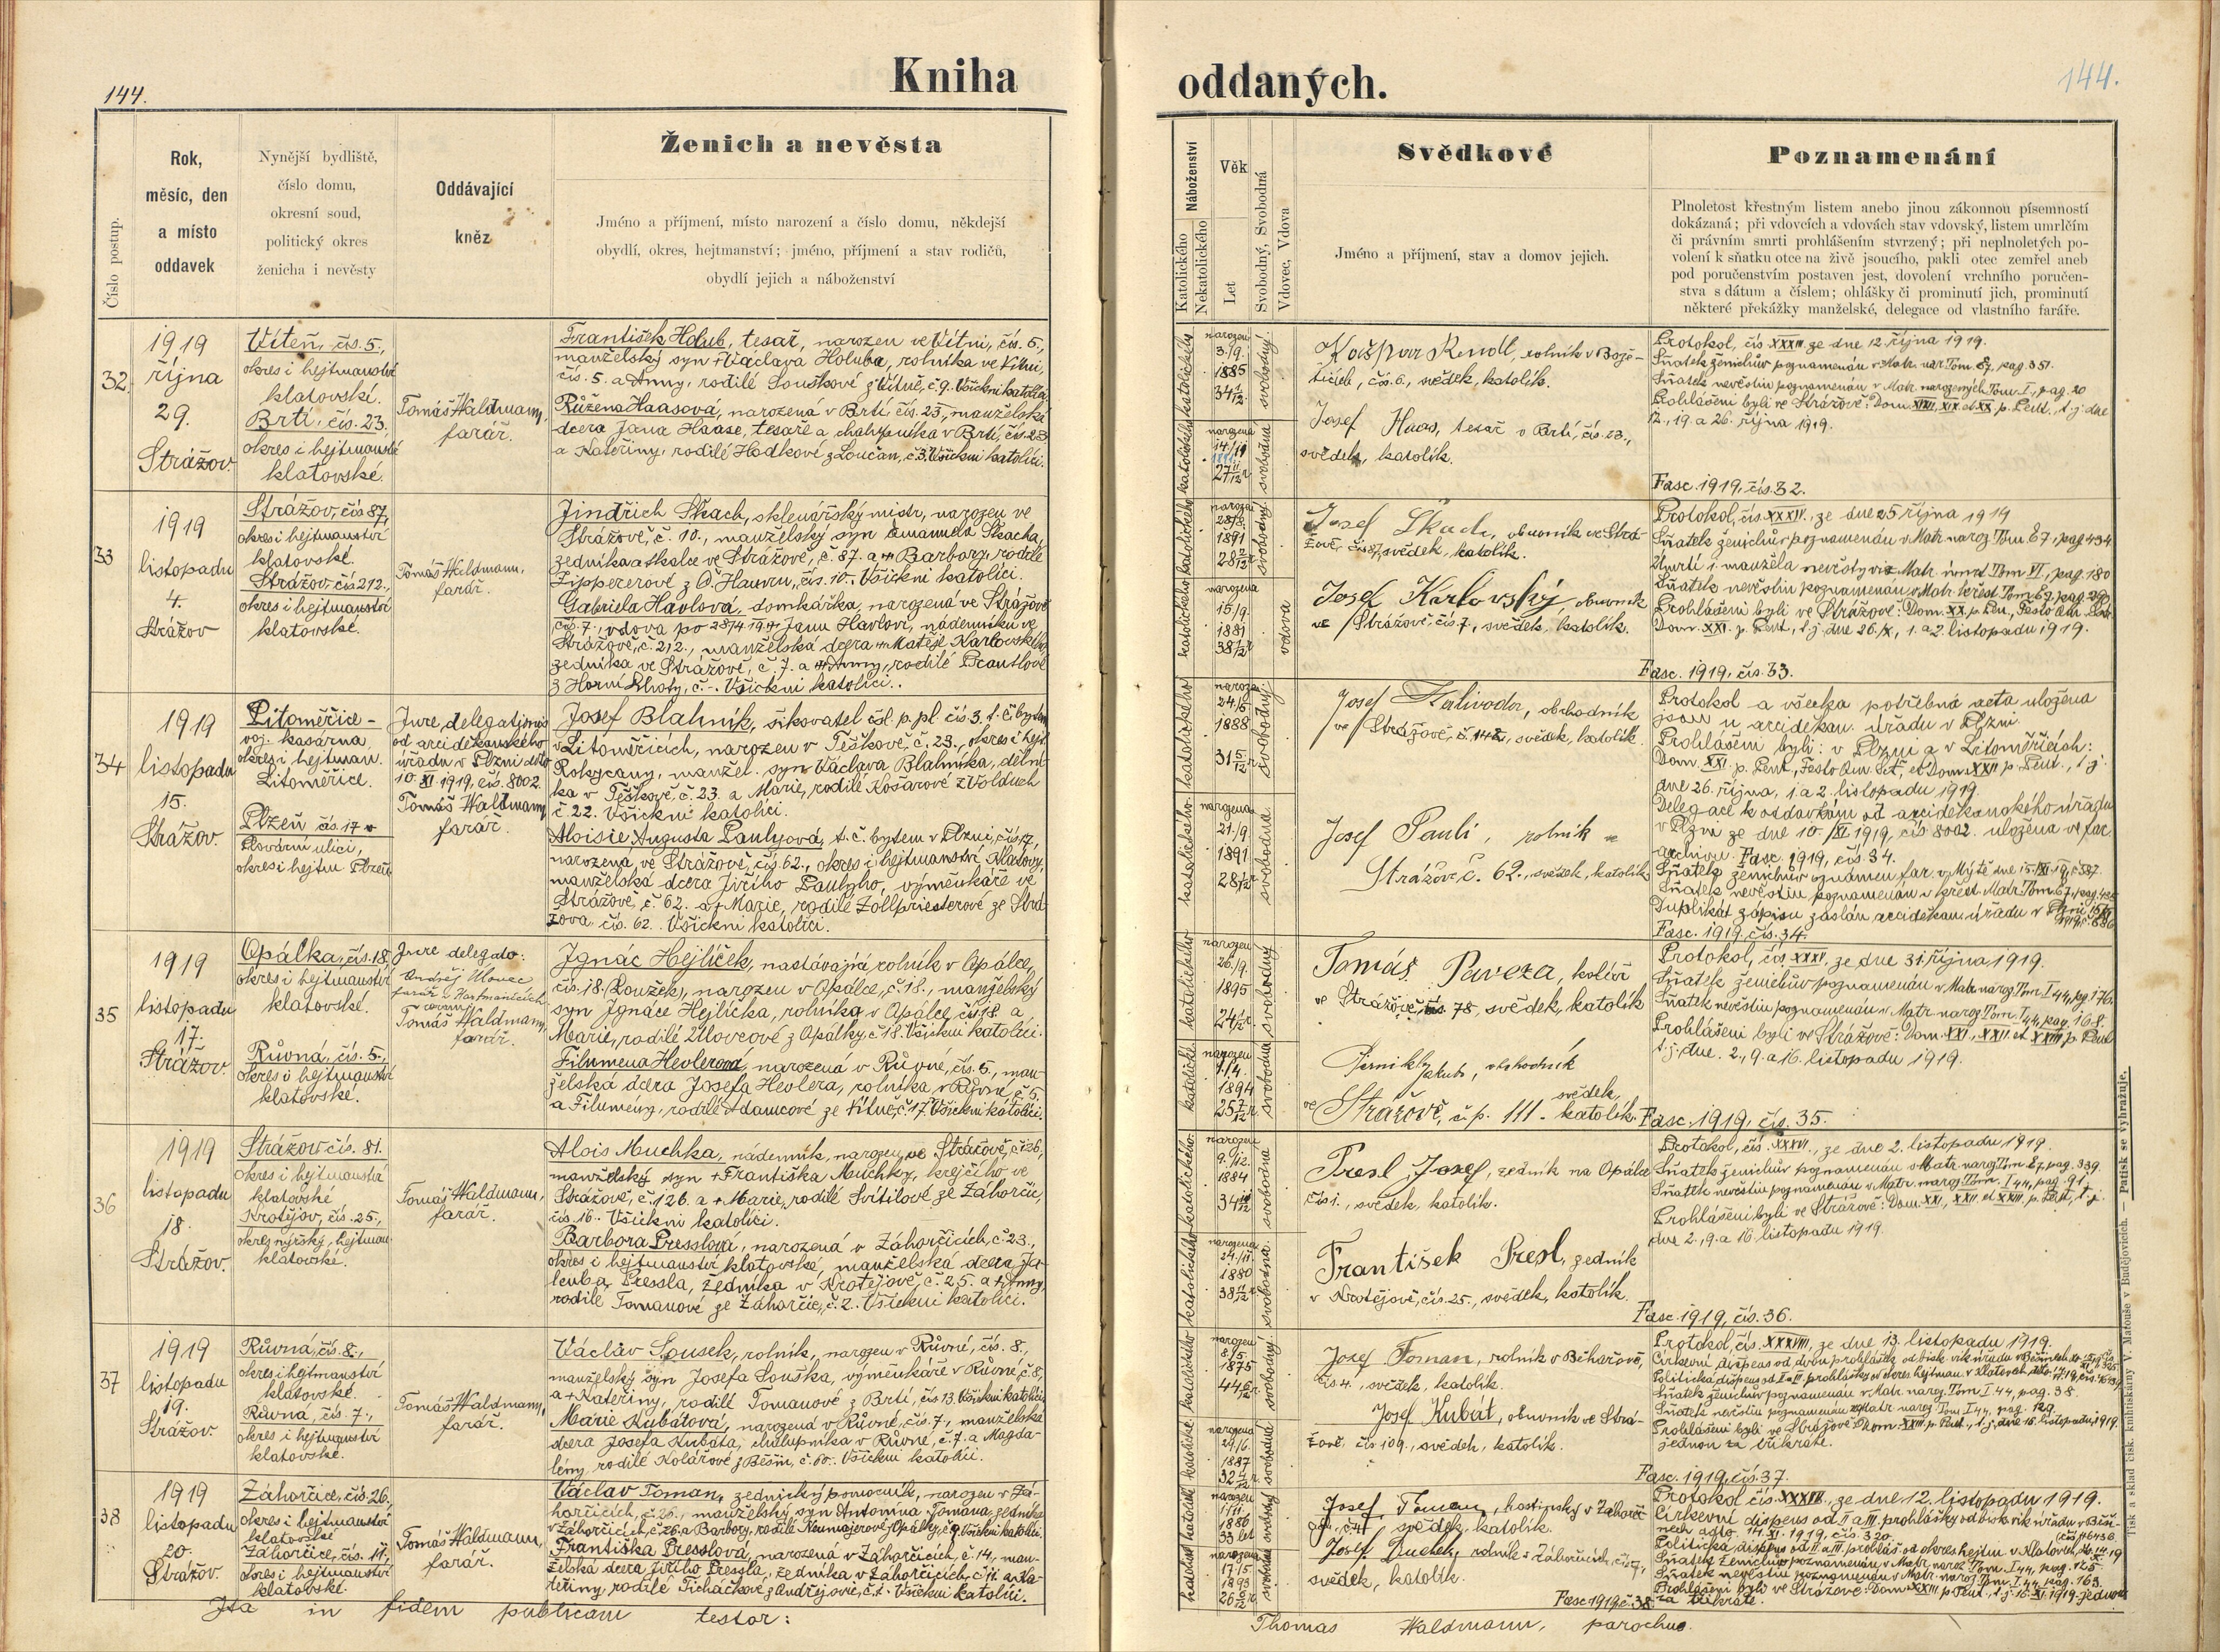 144.
Kniha
oddaných.
144.
Číslo postup.
Rok,
měsíc, den
a místo
oddavek
Nynější bydliště,
číslo domu,
okresní soud,
politický okres
ženicha i nevěsty
Oddávající
kněz
Ženich a nevěsta
Jméno a příjmení, místo narození a číslo domu, někdejší
obydlí, okres, hejtmanství; jméno, příjmení a stav rodičů,
obydlí jejich a náboženství
Náboženství
Katolického
Nekatolického
Věk
Let
Svobodný, Svobodná
Vdovec, Vdova
Svědkové
Jméno a příjmení, stav a domov jejich.
Poznamenání
Plnoletost křestným listem anebo jinou zákonnou písemností
dokázaná; při vdovcích a vdovách stav vdovský, listem umrlčím
či právním smrti prohlášením stvrzený; při neplnoletých po-
volení k sňatku otce na živě jsoucího, pakli otec zemřel aneb
pod poručenstvím postaven jest, dovolení vrchního poručen-
stva s dátum a číslem; ohlášky či prominutí jich, prominutí
některé překážky manželské, delegace od vlastního faráře.
32.
1919
října
29.
Strážov
Víteň, čís. 5.,
okres i hejtmanství
klatovské.
Brtí, čís. 23.
okres i hejtmanství
klatovské.
Tomáš Waldmann,
farář.
František Holub, tesař, narozen ve Vítni, čís. 5.,
manželský syn +Václava Holuba, rolníka ve Vítni,
čís. 5. a Anny, rodilé Louškové z Vítně, č. 9. Všickni katolíci.
Růžena Haasová, narozená v Brtí, čís. 23., manželská
dcera Jana Haase, tesaře a chalupníka v Brtí, čís. 23
a Kateřiny, rodilé Hodkové z Loučan, č. 3. Všickni katolíci.
katolického
narozen
3./9.
1885
34 1/12
svobodný
katolického
narozená
27 11/12 r
svobodná
Kašpar Rendl, rolník v Boje-
ticích, čís. 6., svědek, katolík.
Josef Haas, tesař v Brtí, čís. 23.,
svědek, katolík.
Protokol, čís. XXXIII. ze dne 12. října 1919.
Sňatek ženichův poznamenán v Matr. nar. Tom. 67, pag. 351.
Sňatek nevěstin poznamenán v Matr. narozených Tom. I., pag. 20
Prohlášeni byli ve Strážově: Dom. XVIII, XIX. et XX. p. Pent., t. j. dne
12., 19. a 26. října 1919.
Fasc. 1919, čís. 32.
33
1919
listopadu
4.
Strážov
Strážov, čís 87,
okres i hejtmanství
klatovské.
Strážov, čís 212.,
okres i hejtmanství
klatovské.
Tomáš Waldmann,
farář.
Jindřich Skach, sklenářský mistr, narozen ve
Strážově, č. 10., manželský syn Emanuela Skacha,
zedníka a skalce ve Strážově, č. 87. a Barbory, rodilé
Zippererové z Hauru, čís. 10. Všickni katolíci.
Gabriela Havlová, domkářka, narozená ve Strážově
čís. 7., vdova po Janu Havlovi, nádenníku ve
Strážově, č. 212., manželská dcera Matěje Karlovského,
zedníka ve Strážově, č. 7. a Anny, rodilé
z Horní Lhoty, č. -. Všickni katolíci.
katolického
narozen
28/8.
1891
28 2/12 r
svobodný
katolického
narozená
15/9.
1881
38 1/12 r
vdova
Josef Skach, obuvník ve Strá-
žově, čís 87, svědek, katolík.
Josef Karlovský, obuvník
ve Strážově, čís 7., svědek, katolík.
Protokol, čís. XXXIV., ze dne 25 října 1919
Sňatek ženichův poznamenán v Matr. naroz. Tom. 67., pag. 434
Úmrtí 1. manžela nevěsty viz Matr. úmrt Tom VI, pag. 180
Sňatek nevěstin poznamenán v Matr. křest. Tom. 67, pag. 290
Prohlášeni byli ve Strážově: Dom. XX. p. Pen., Festo Om. Sanct.
Dom. XXI. p. Pent., t. j. dne 26./X., 1. a 2. listopadu 1919.
Fasc. 1919, čís. 33.
34
1919
listopadu
15.
Strážov.
Litoměřice -
voj. kasárna
okres i hejtman.
Litoměřice.
Plzeň čís. 17 v
Plovární ulici,
okres i hejtm Plzeň
Jure delegationis
od arciděkanského
úřadu v Plzni ddto
10. XI. 1919, čís. 8002.
Tomáš Waldmann
farář.
Josef Blahník, šikovatel čsl. p. pl. čís 3. t. č. bytem
v Litoměřicích, narozen v Těškově, č. 23., okres i hejt.
Rokycany, manžel. syn Václava Blahníka, dělní-
ka v Těškově, č. 23. a Marie, rodilé Košařové z Volduch
č. 22. Všickni katolíci.
Aloisie Augusta Paulyová, t. č. bytem v Plzni, čís 17,
narozená ve Strážově, čís. 62., okres i hejtmanství Klatovy,
manželská dcera Jiřího Paulyho, výměnkáře ve
Strážově, č. 62. a +Marie, rodilé Zollpriesterové ze Strá-
žova čís. 62. Všickni katolíci.
katolického
narozen
24/5
1888
31 5/12 r
svobodný
katolického
narozena
21./9.
1891
28 1/12 r
svobodná
Josef Kalivoda, obchodník
ve Strážově, č. 142, svědek, katolík.
Josef Pauli, rolník v
Strážově č. 62., svědek, katolík
Protokol a všecka potřebná acta uložena
jsou u arciděkan. úřadu v Plzni.
Prohlášeni byli: v Plzni a v Litoměřicích:
Dom. XXI. p. Pent., Festo Om. Set., et Dom. XXII p. Pent., t. j.
dne 26. října, 1. a 2. listopadu 1919.
Delegace k oddavkám od arciděkanského úřadu
v Plzni ze dne 10./XI. 1919, čís 8002. uložena ve far.
archivu. Fasc. 1919, čís. 34.
Sňatek ženichův oznámen far. v Mýtě dne 15./XI. 19, č. 587.
Sňatek nevěstin poznamenán v křest. Matr. Tom. 67, pag.
Duplikát zápisu zaslán arciděkan. úřadu v Plzni
Fasc. 1919, čís. 34.
35
1919
listopadu
17.
Strážov
Opálka, čís. 18,
okres i hejtmanství
klatovské.
Růvná, čís. 5.,
okres i hejtmanství
klatovské.
Jure delegato:
Ondřej Ulovec
farář v Hartmanicích
coram
Tomáš Waldmann,
farář.
Ignác Hejlíček, nastávající rolník v Opálce,
čís. 18. (Loužek), narozen v Opálce, č. 18., manželský
syn Ignáce Hejlíčka, rolníka v Opálce, čís 18. a
Marie, rodilé Ulovcové z Opálky, č. 18. Všickni katolíci.
Filumena Hevlerová, narozená v Růvné, čís. 5., man-
želská dcera Josefa Hevlera, rolníka v Růvné, č. 5.
a Filumény, rodilé Adamcové ze Vítně, č. 17. Všickni katolíci.
katolického
narozen
26./9.
1895
24 1/12 r.
svobodný
katolické
narozen
7./4.
1894
25 7/12 r
svobodná
Tomáš Paveza, kolář
ve Strážově, čís. 78, svědek, katolík
Perniklj Jakub, obchodník
ve Strážově, č. p. 111 - svědek, katolík.
Protokol, čís. XXXV., ze dne 31. října 1919.
Sňatek ženichův poznamenán v Matr. naroz. Tom I44, pg. 176.
Sňatek nevěstin poznamenán v Matr. naroz. Tom. I44, pag. 168.
Prohlášeni byli ve Strážově: Dom. XXI., XXII. et XXIII p. Pent
t. j. dne. 2., 9. a 16. listopadu 1919.
Fasc. 1919, čís. 35.
36
1919
listopadu
18.
Strážov.
Strážov čís. 81.
okres i hejtmanství
klatovské
Krotějov, čís. 25.,
okres nýrský, hejtman.
klatovské.
Tomáš Waldmann,
farář.
Alois Muchka, nádenník, narozen ve Strážově, č. 126,
manželský syn +Františka Muchky, krejčího ve
Strážově, č. 126. a +Marie, rodilé Svítilové ze Záhorčic,
čís. 16. Všickni katolíci.
Barbora Presslová, narozená v Záhorčicích, č. 23.,
okres i hejtmanství klatovské, manželská dcera Ja-
kuba Pressla, zedníka v Krotějově, č. 25. a +Anny,
rodilé Tomanové ze Záhorčic, č. 2. Všickni katolíci.
katolického
narozen
9./12.
1884
svobodna
katolického
narozena
24./11.
1880
38 11/12 r
svobodna.
Presl Josef, zedník na Opálce
čís 1., svědek, katolík.
František Presl, zedník
v Krotějově, čís. 25., svědek, katolík.
Protokol, čís. XXXVI., ze dne 2. listopadu 1919.
Sňatek ženichův poznamenán v Matr. naroz. Tom. 67, pag. 339.
Sňatek nevěstin poznamenán v Matr. naroz. Tom. I44, pag. 91.
Prohlášeni byli ve Strážově: Dom. XXI., XXII. et XXIII. p. Pent., t. j.
dne 2., 9. a 16. listopadu 1919.
Fasc. 1919, čís. 36.
37
1919
listopadu
19.
Strážov
Růvná, čís. 8.,
okres i hejtmanství
klatovské.
Růvná, čís. 7.,
okres i hejtmanství
klatovské.
Tomáš Waldmann,
farář.
Václav Lousek, rolník, narozen v Růvné, čís. 8.,
manželský syn Josefa Louška, výměnkáře v Růvné, č. 8,
a +Kateřiny, rodilé Tomanové z Brtí, čís 13. Všickni katolíci.
Marie Kubátova, narozená v Růvné, čís. 7., manželská
dcera Josefa Kubáta, chalupníka v Růvné, č. 7. a Magda-
lény, rodilé Kolářové z Běšin, č. 60. Všickni katolíci.
katolického
narozen
8/5
1875
44 6/12 r
svobodný
katolické
narozená
29/6.
1887
svobodná
Josef Toman, rolník v Běhařově,
čís. 4., svědek, katolík.
Josef Kubát, obuvník ve Strá-
žově, čís 109., svědek, katolík.
Protokol, čís. XXXVIII, ze dne 13. listopadu 1919.
Sňatek ženichův poznamenán v Matr. naroz. Tom I 44, pag. 38.
Sňatek nevěstin poznamenán v Matr. naroz. Tom I 44, pag. 129.
Prohlášeni byli ve Strážově Dom. XXIII. p. Pent., t. j. dne 16. listopadu 1919.
jednou za třikráte.
Fasc. 1919, čís. 37.
38
1919
listopadu
20.
Strážov
Záhorčice, čís. 26.,
okres i hejtmanství
klatovské
Záhorčice, čís. 11.,
okres i hejtmanství
klatovské.
Tomáš Waldmann,
farář.
Václav Toman, zednický pomocník, narozen v Zá-
horčicích, č. 26., manželský syn Antonína Tomana, zedníka
v Záhorčicích, č. 26. a Barbory, rodilé Neumajerové z Opálky, č. 9. Všickni katolíci.
Františka Presslová, narozená v Záhorčicích, č. 14., man-
želská dcera Jiřího Pressla, zedníka v Záhorčicích, č. 11. a Ka-
teřiny, rodilé Ticháčkové z Andrejovic, č. 1. Všickni katolíci.
katolické
narozen
1/11.
1886
33 let
svobodný
narozená
17/5
1893
26 6/12 r
svobodná
Josef Toman, hostinský v Záhorč-
svědek, katolík.
Josef Duchek, rolník v Záhorčicích, čís 7,
svědek, katolík.
Protokol čís. XXXVII., ze dne 12. listopadu 1919.
Církevní dispens od II a III. prohlášky od bisk. vik. úřadu v Běši-
nech ddto. 14. XI. 1919, čís. 320.
Sňatek ženichův poznamenán v Matr. naroz. Tom. I44, pag. 125.
Sňatek nevěstin poznamenán v Matr. naroz. Tom. I44, pag. 163.
Prohlášeni byli ve Strážově: Dom. XXIII p. Pent., t. j. 16. XI. 1919. jednou
za třikráte.
Fasc 1919, č. 38.
Ita in fidem publicam testor:
Thomas Waldmann, parochus.
Tisk a sklad čísk. knihtiskárny V. Matouše v Budějovicích. — Patisk se vyhražuje.